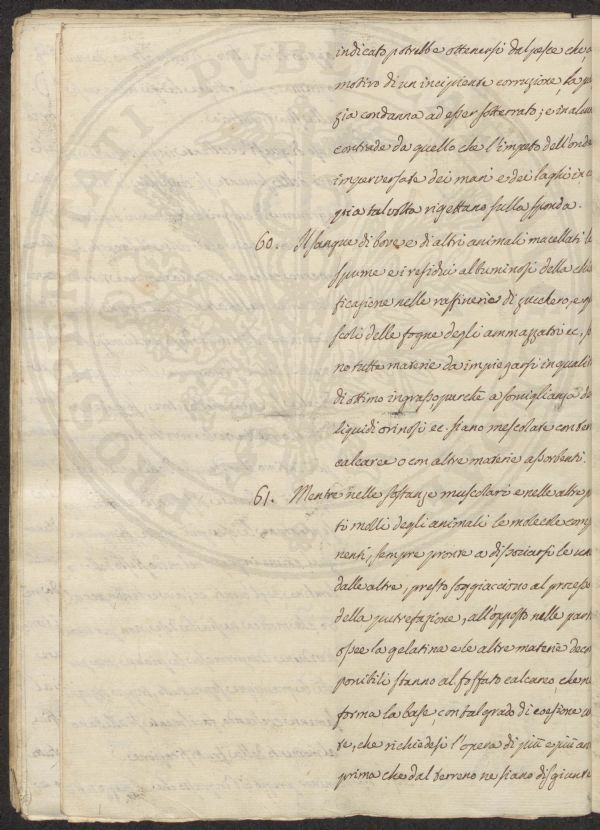 indicato potrebbe ottenersi dal pesce che, a
motivo di un incipiente corruzione, la pu
zia condanna ad esser sotterrato; e in alcun
contrade da quello che l'impeto dell'onde
imperversate dei mari e dei laghi in c
pria talvolta rigettano sulla sponda.
60. Il sangue di bove e di altri animali macellati le
spume e i residui albuminosi della chi
ficazione nelle raffinerie di zucchero, e g
scoli delle fogne degli ammazzatoi ec., s
no tutte materie da impiegarsi in qualit
di ottimo ingrasso, purchè a somiglianza de
liquidi orinosi ec. siano mescolate con ter
calcaree o con altre materie assorbenti.
61. Mentre nelle sostanze muscolari e nelle altre p
ti molli degli animali le molecole comp
nenti, sempre pronte a dissociarsi le une
dalle altre, presto soggiacciono al processo
della putrefazione, all'opposto nelle parti
ossee la gelatina e le altre materie decom
ponibili stanno al fosfato calcareo, che ne
forma la base, con tal grado di coesione u
te, che richiedesi l'opera di più e più ann
prima che dal terreno ne siano disgiunte
PROSPERITATI PUBL